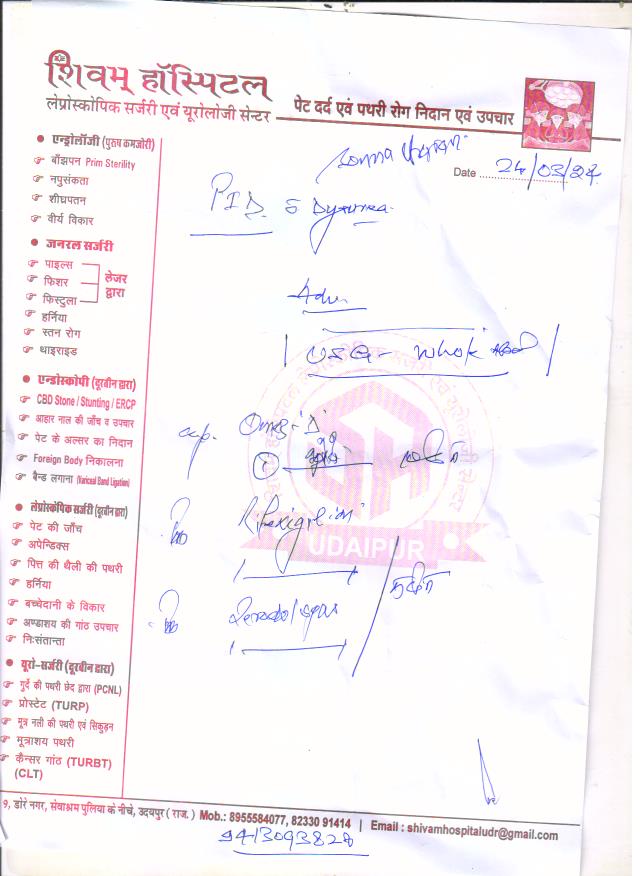 शिवम् हॉस्पिटल
लेप्रोस्कोपिक सर्जरी एवं यूरोलोजी सेन्टर
पेट दर्द एवं पथरी रोग निदान एवं उपचार
Date 24/03/24
एन्ड्रोलॉजी (पुरुष कमजोरी)
बाँझपन Prim Sterility
नपुसंकता
शीघ्रपतन
वीर्य विकार
जनरल सर्जरी
पाइल्स
फिशर
फिस्टुला
लेजर द्वारा
हर्निया
स्तन रोग
थाइराइड
एण्डोस्कोपी (दूरबीन द्वारा)
CBD Stone / Stunting / ERCP
आहार नाल की जाँच व उपचार
पेट के अल्सर का निदान
Foreign Body निकालना
बैन्ड लगाना (Variceal Band Ligation)
लेप्रोस्कोपिक सर्जरी (दूरबीन द्वारा)
पेट की जाँच
अपेन्डिक्स
पित्त की थैली की पथरी
हर्निया
बच्चेदानी के विकार
अण्डाशय की गांठ उपचार
निःसंतान्ता
यूरो-सर्जरी (दूरबीन द्वारा)
गुर्दे की पथरी छेद द्वारा (PCNL)
प्रोस्टेट (TURP)
मूत्र नली की पथरी एवं सिकुड़न
मूत्राशय पथरी
कैन्सर गांठ (TURBT)
(CLT)
PID
Adv
USG - Whole
cap.
UDAIPUR
9, डोरे नगर, सेवाश्रम पुलिया के नीचे, उदयपुर ( राज. ) Mob.: 8955584077, 82330 91414 | Email : shivamhospitaludr@gmail.com
9413093828